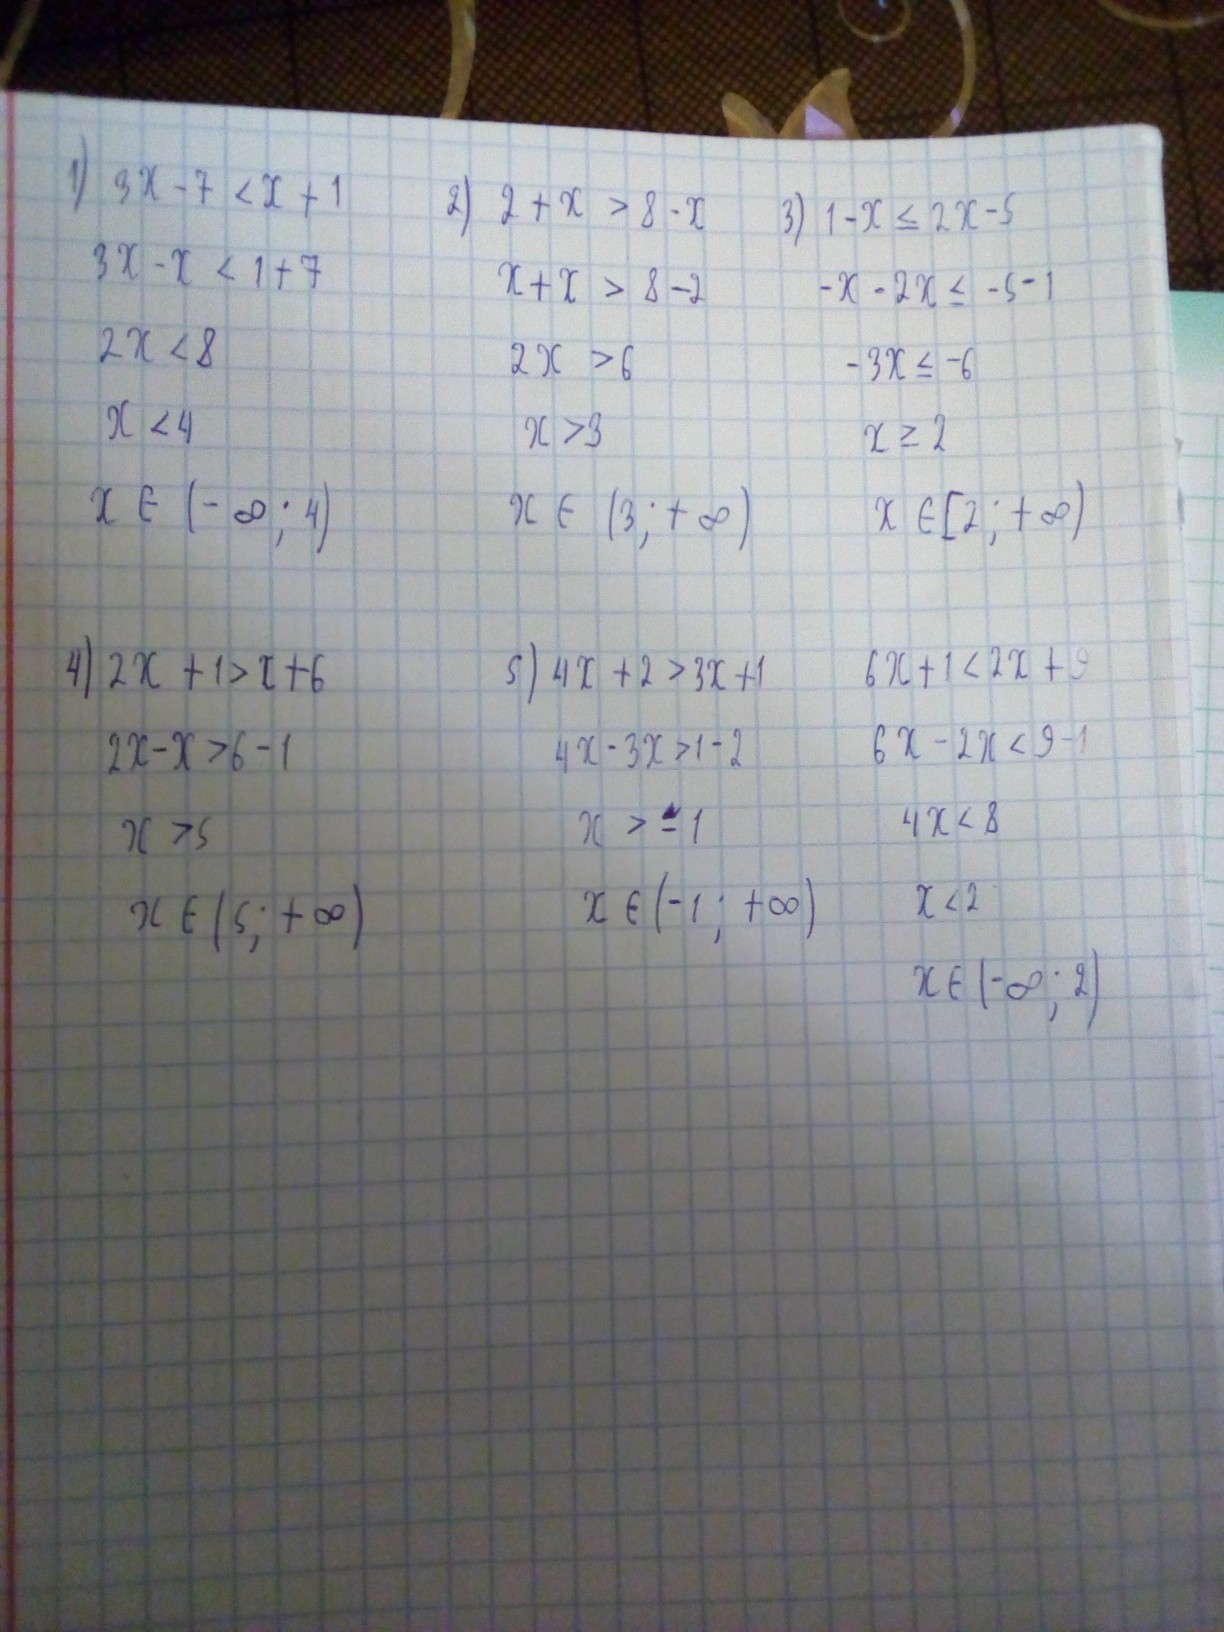 1) 3x - 7 < x + 1
3x - x < 1 + 7
2x < 8
x < 4
x ∈ (-∞; 4)
2) 2 + x > 8 - x
x + x > 8 - 2
2x > 6
x > 3
x ∈ (3; +∞)
3) 1 - x ≤ 2x - 5
-x - 2x ≤ -5 - 1
-3x ≤ -6
x ≥ 2
x ∈ [2; +∞)
4) 2x + 1 > x + 6
2x - x > 6 - 1
x > 5
x ∈ (5; +∞)
5) 4x + 2 > 3x + 1
4x - 3x > 1 - 2
x > -1
x ∈ (-1; +∞)
6x + 1 < 2x + 9
6x - 2x < 9 - 1
4x < 8
x < 2
x ∈ (-∞; 2)